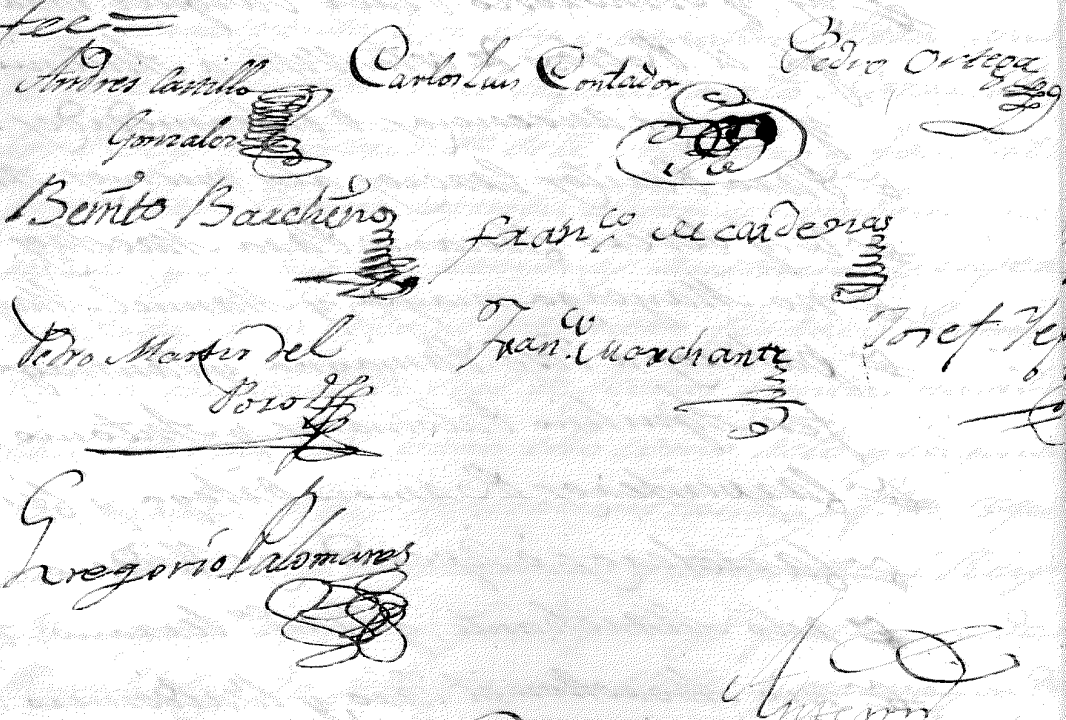 fee=
Andres Castillo Carlos Luis Contador Pedro Ortega
Gonzalez
Benito Barcheno Franco de cardenas
Pedro Martir del Franco Marchante Josef
Pozo
Gregorio Palomares